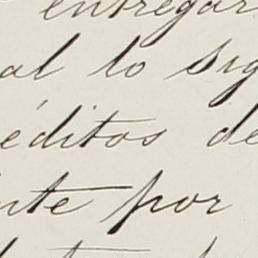 entregar
al lo sig
éditos de
nte por